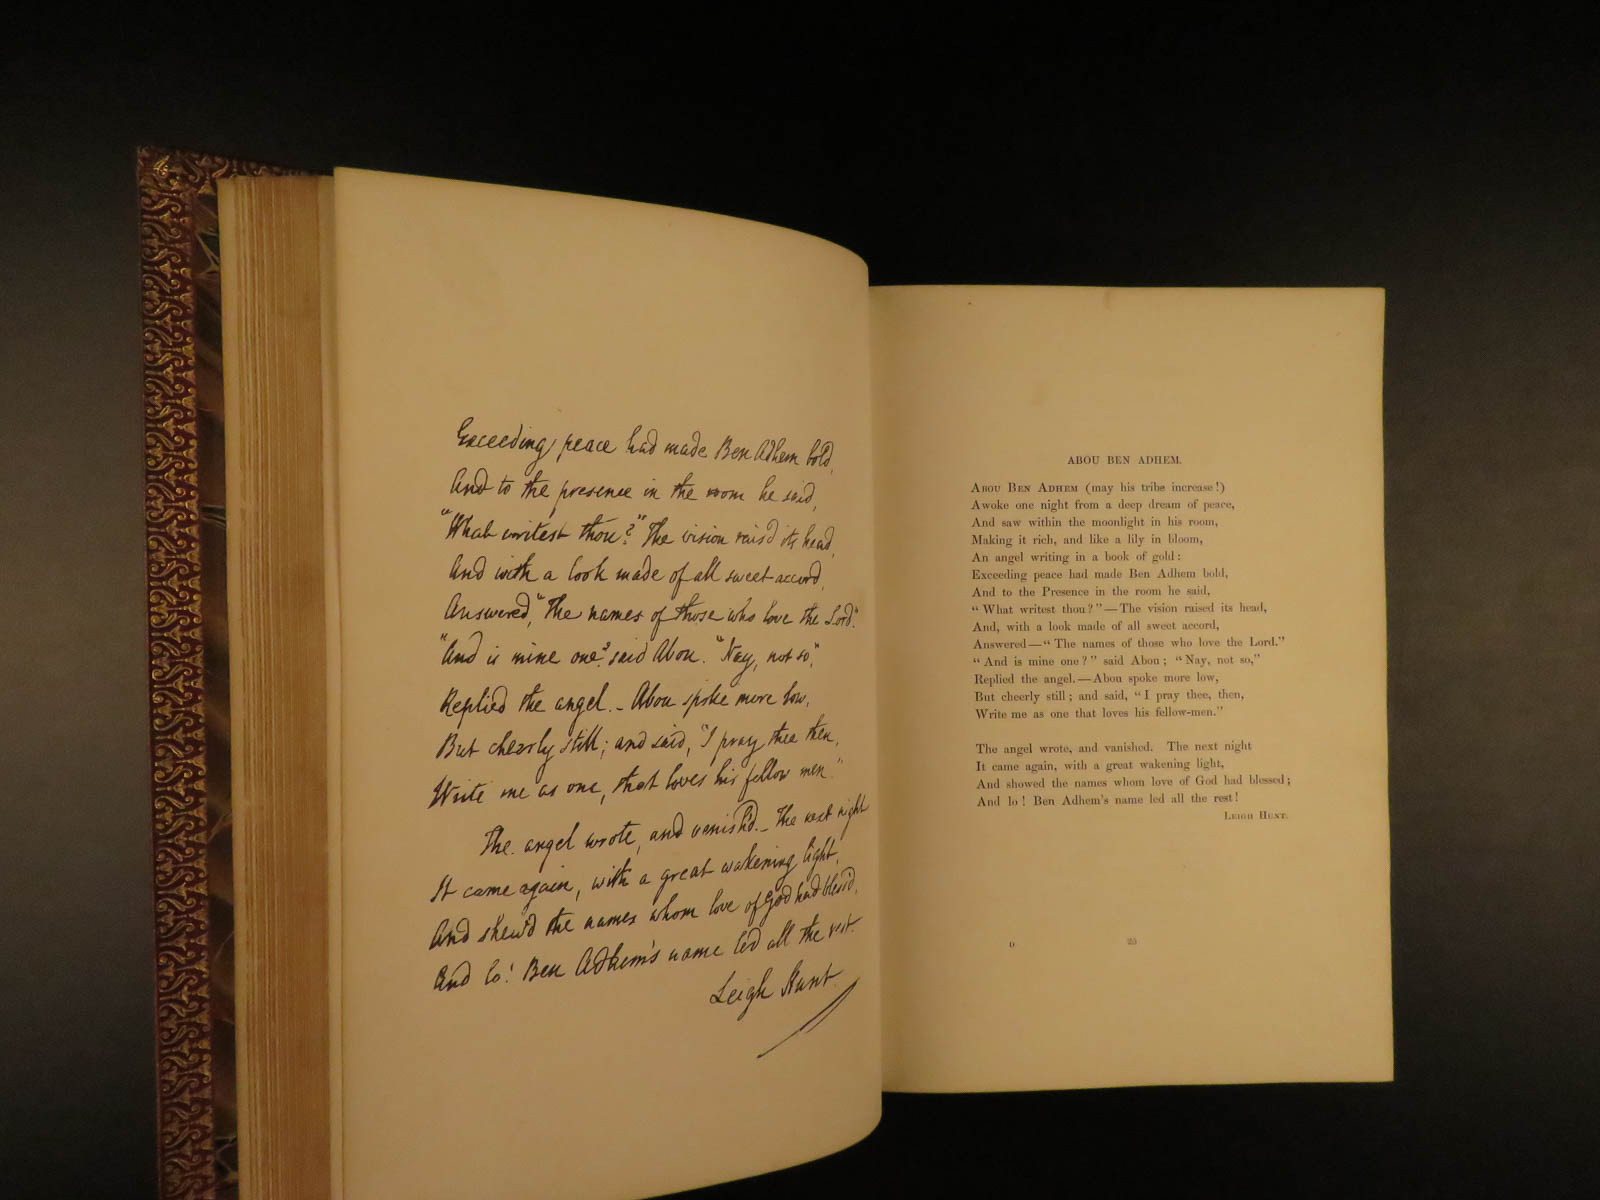 Exceeding peace had made Ben Adhem bold,
And to the presence in the room he said,
"What writest thou?" The vision rais'd its head,
And with a look made of all sweet accord,
Answered, "The names of those who love the Lord."
"And is mine one?" said Abou. "Nay, not so,"
Replied the angel. – Abou spoke more low,
But cheerly still; and said, "I pray thee then,
Write me as one, that loves his fellow men."
The angel wrote, and vanish'd. – The next night
It came again, with a great wakening light,
And shew'd the names whom love of God had bless'd,
And lo! Ben Adhem's name led all the rest.
Leigh Hunt.
ABOU BEN ADHEM.
ABOU BEN ADHEM (may his tribe increase!)
Awoke one night from a deep dream of peace,
And saw within the moonlight in his room,
Making it rich, and like a lily in bloom,
An angel writing in a book of gold:
Exceeding peace had made Ben Adhem bold,
And to the Presence in the room he said,
"What writest thou?"—The vision raised its head,
And, with a look made of all sweet accord,
Answered—"The names of those who love the Lord."
"And is mine one?" said Abou; "Nay, not so,"
Replied the angel.—Abou spoke more low,
But cheerly still; and said, "I pray thee, then,
Write me as one that loves his fellow-men."
The angel wrote, and vanished. The next night
It came again, with a great wakening light,
And showed the names whom love of God had blessed;
And lo! Ben Adhem's name led all the rest!
LEIGH HUNT.
D 25